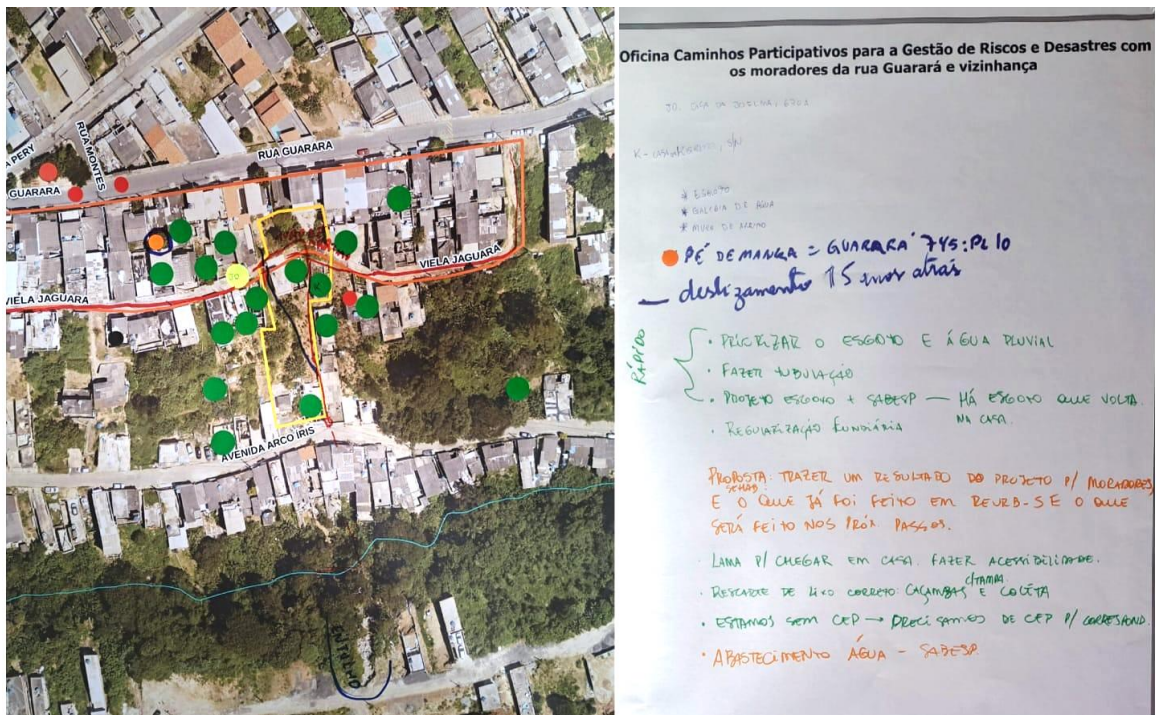 RUA GUARARA
RUA MONTES
A PERY
GUARARA
VIELA JAGUARA
VIELA JAGUARA
JO
K
AVENIDA ARCO ÍRIS
ENTULHO
Oficina Caminhos Participativos para a Gestão de Riscos e Desastres com
os moradores da rua Guarará e vizinhança
JO.
K -
* ESGOTO
* GALERIA DE ÁGUA
* MURO DE ARRIMO
PÉ DE MANGA = GUARARÁ 745: PL 10
— deslizamento 15 anos atrás
RÁPIDO
• PRIORIZAR O ESGOTO E ÁGUA PLUVIAL
• FAZER TUBULAÇÃO
• PROJETO ESGOTO + SABESP — HÁ ESGOTO QUE VOLTA
NA CASA.
• REGULARIZAÇÃO FUNDIÁRIA
PROPOSTA: TRAZER UM RESULTADO DO PROJETO P/ MORADORES,
SEHAB
E O QUE JÁ FOI FEITO EM REURB-S E O QUE
SERÁ FEITO NOS PRÓX. PASSOS.
• LAMA P/ CHEGAR EM CASA. FAZER ACESSIBILIDADE.
• DESCARTE DE LIXO CORRETO: CAÇAMBAS C/TAMPA E COLETA
• ESTAMOS SEM CEP → PRECISAMOS DE CEP P/ CORRESPOND.
• ABASTECIMENTO ÁGUA - SABESP